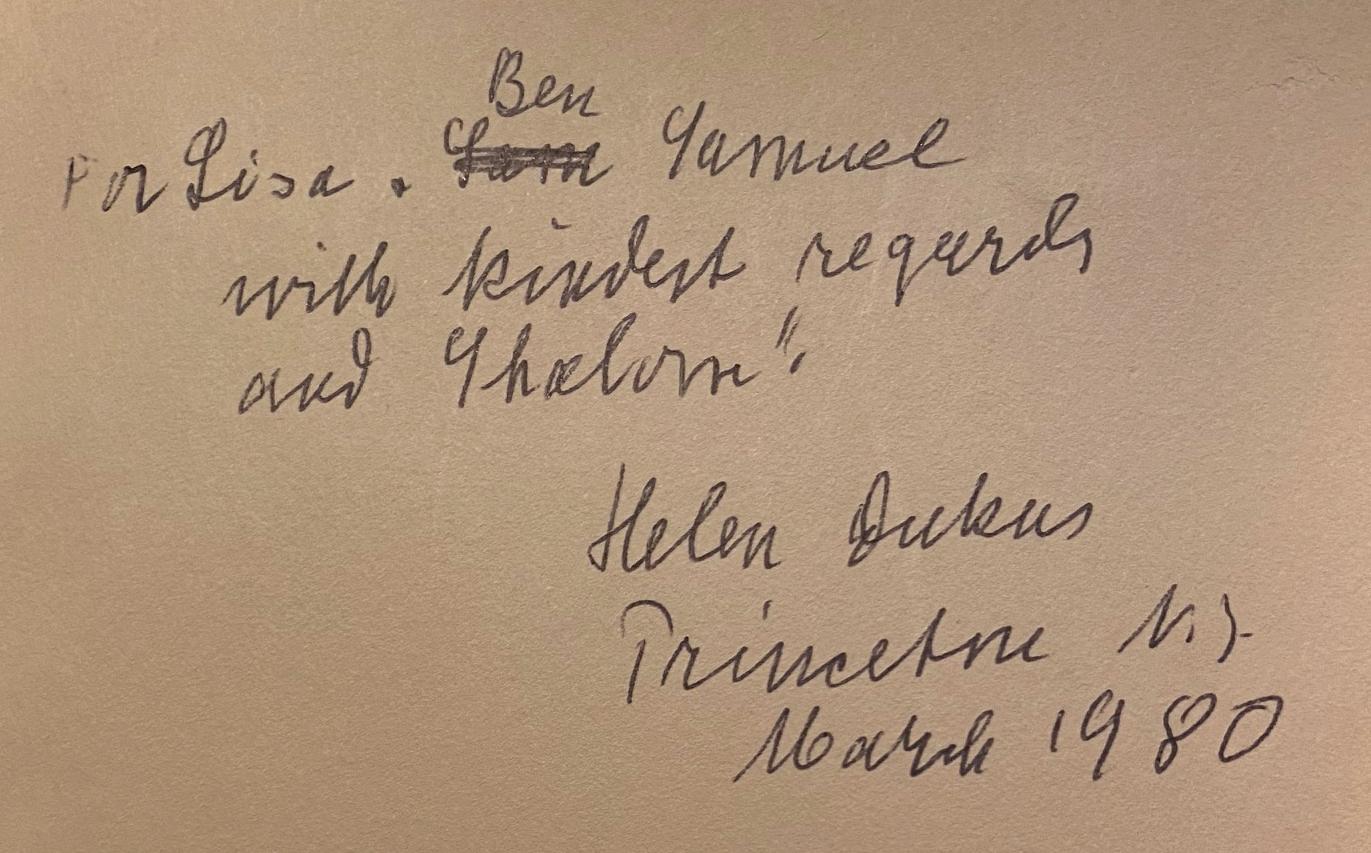 Ben
For Lisa + Sam Samuel
with kindest regards
and Shalom".
Helen Dukas
Princeton N.J.
March 1980